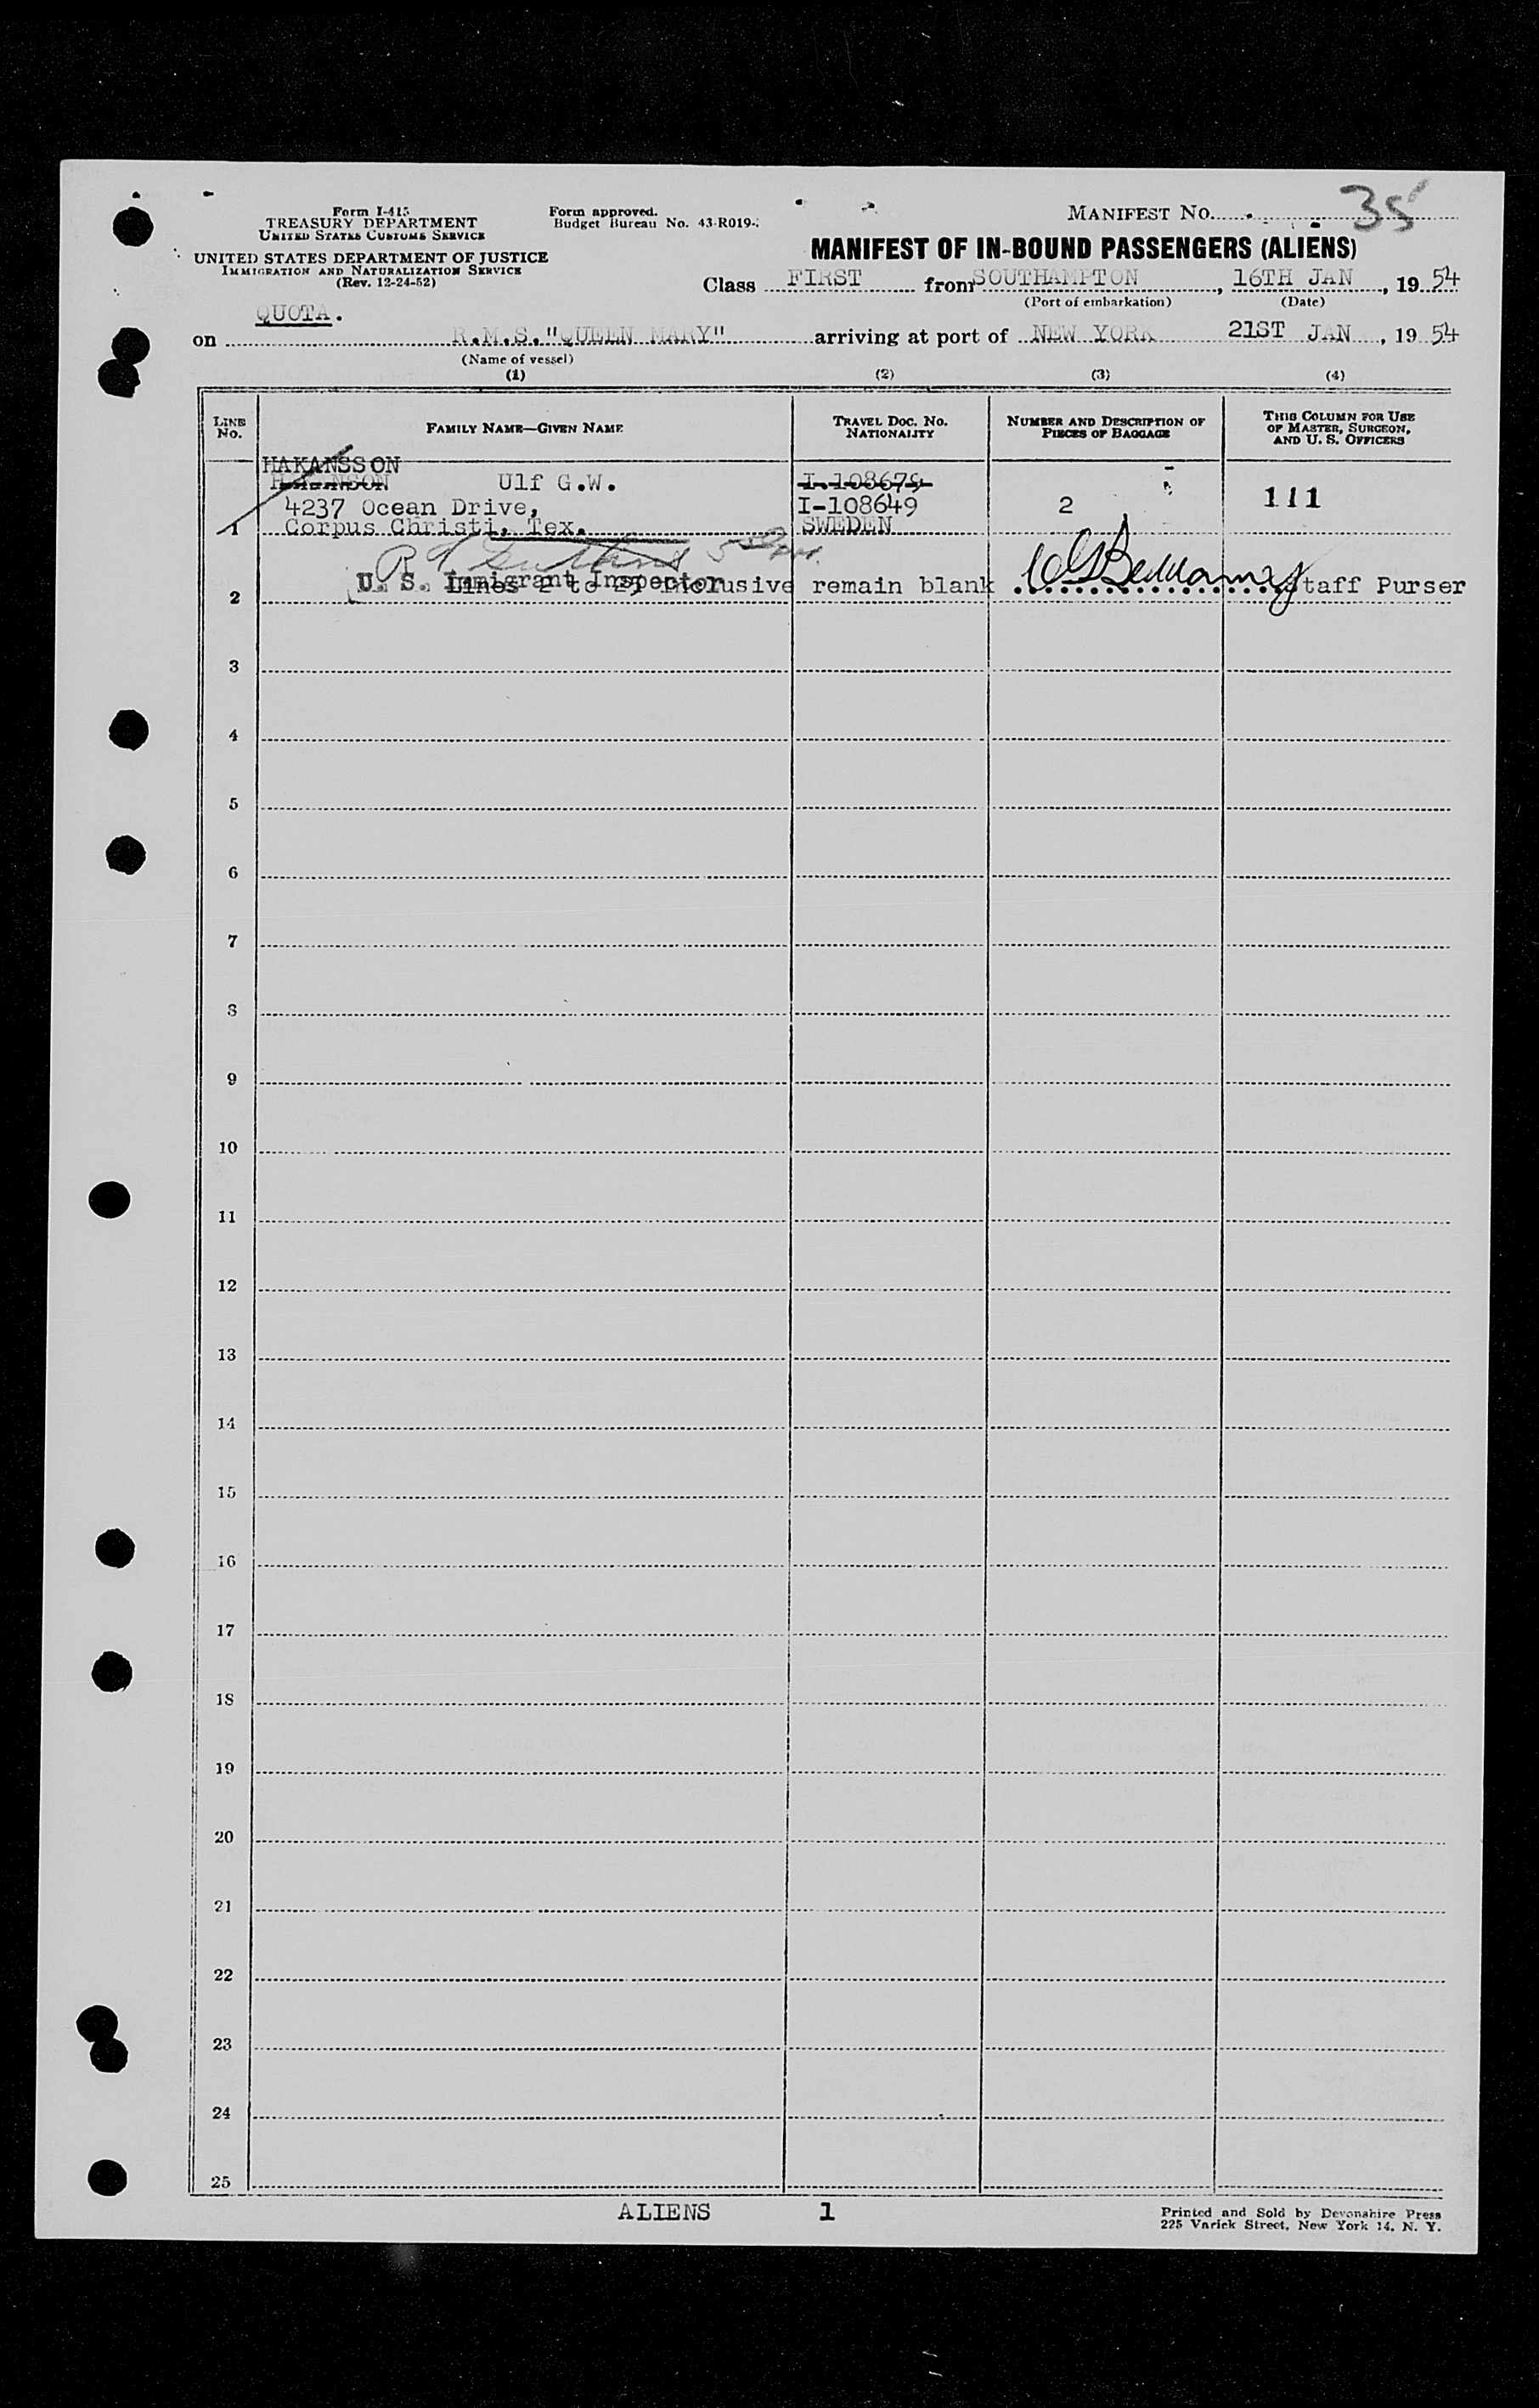 Form I-415
TREASURY DEPARTMENT
UNITED STATES CUSTOMS SERVICE
UNITED STATES DEPARTMENT OF JUSTICE
IMMIGRATION AND NATURALIZATION SERVICE
(Rev. 12-24-52)
Form approved.
Budget Bureau No. 43-R019-
MANIFEST NO. 35
MANIFEST OF IN-BOUND PASSENGERS (ALIENS)
Class FIRST from SOUTHAMPTON, 16TH JAN, 19 54
(Port of embarkation) (Date)
QUOTA.
on R.M.S. "QUEEN MARY" arriving at port of NEW YORK 21ST JAN, 19 54
(Name of vessel)
(1) (2) (3) (4)
LINE NO.
FAMILY NAME—GIVEN NAME
TRAVEL DOC. NO. NATIONALITY
NUMBER AND DESCRIPTION OF PIECES OF BAGGAGE
THIS COLUMN FOR USE OF MASTER, SURGEON, AND U. S. OFFICERS
HAKANSSON
Ulf G.W. I-108679
4237 Ocean Drive, I-108649 2 111
1 Corpus Christi, Tex. SWEDEN
U. S. Immigrant Inspector
2 Lines 2 to 25 inclusive remain blank Staff Purser
3
4
5
6
7
8
9
10
11
12
13
14
15
16
17
18
19
20
21
22
23
24
25
ALIENS 1
Printed and Sold by Devonshire Press
225 Varick Street, New York 14, N. Y.